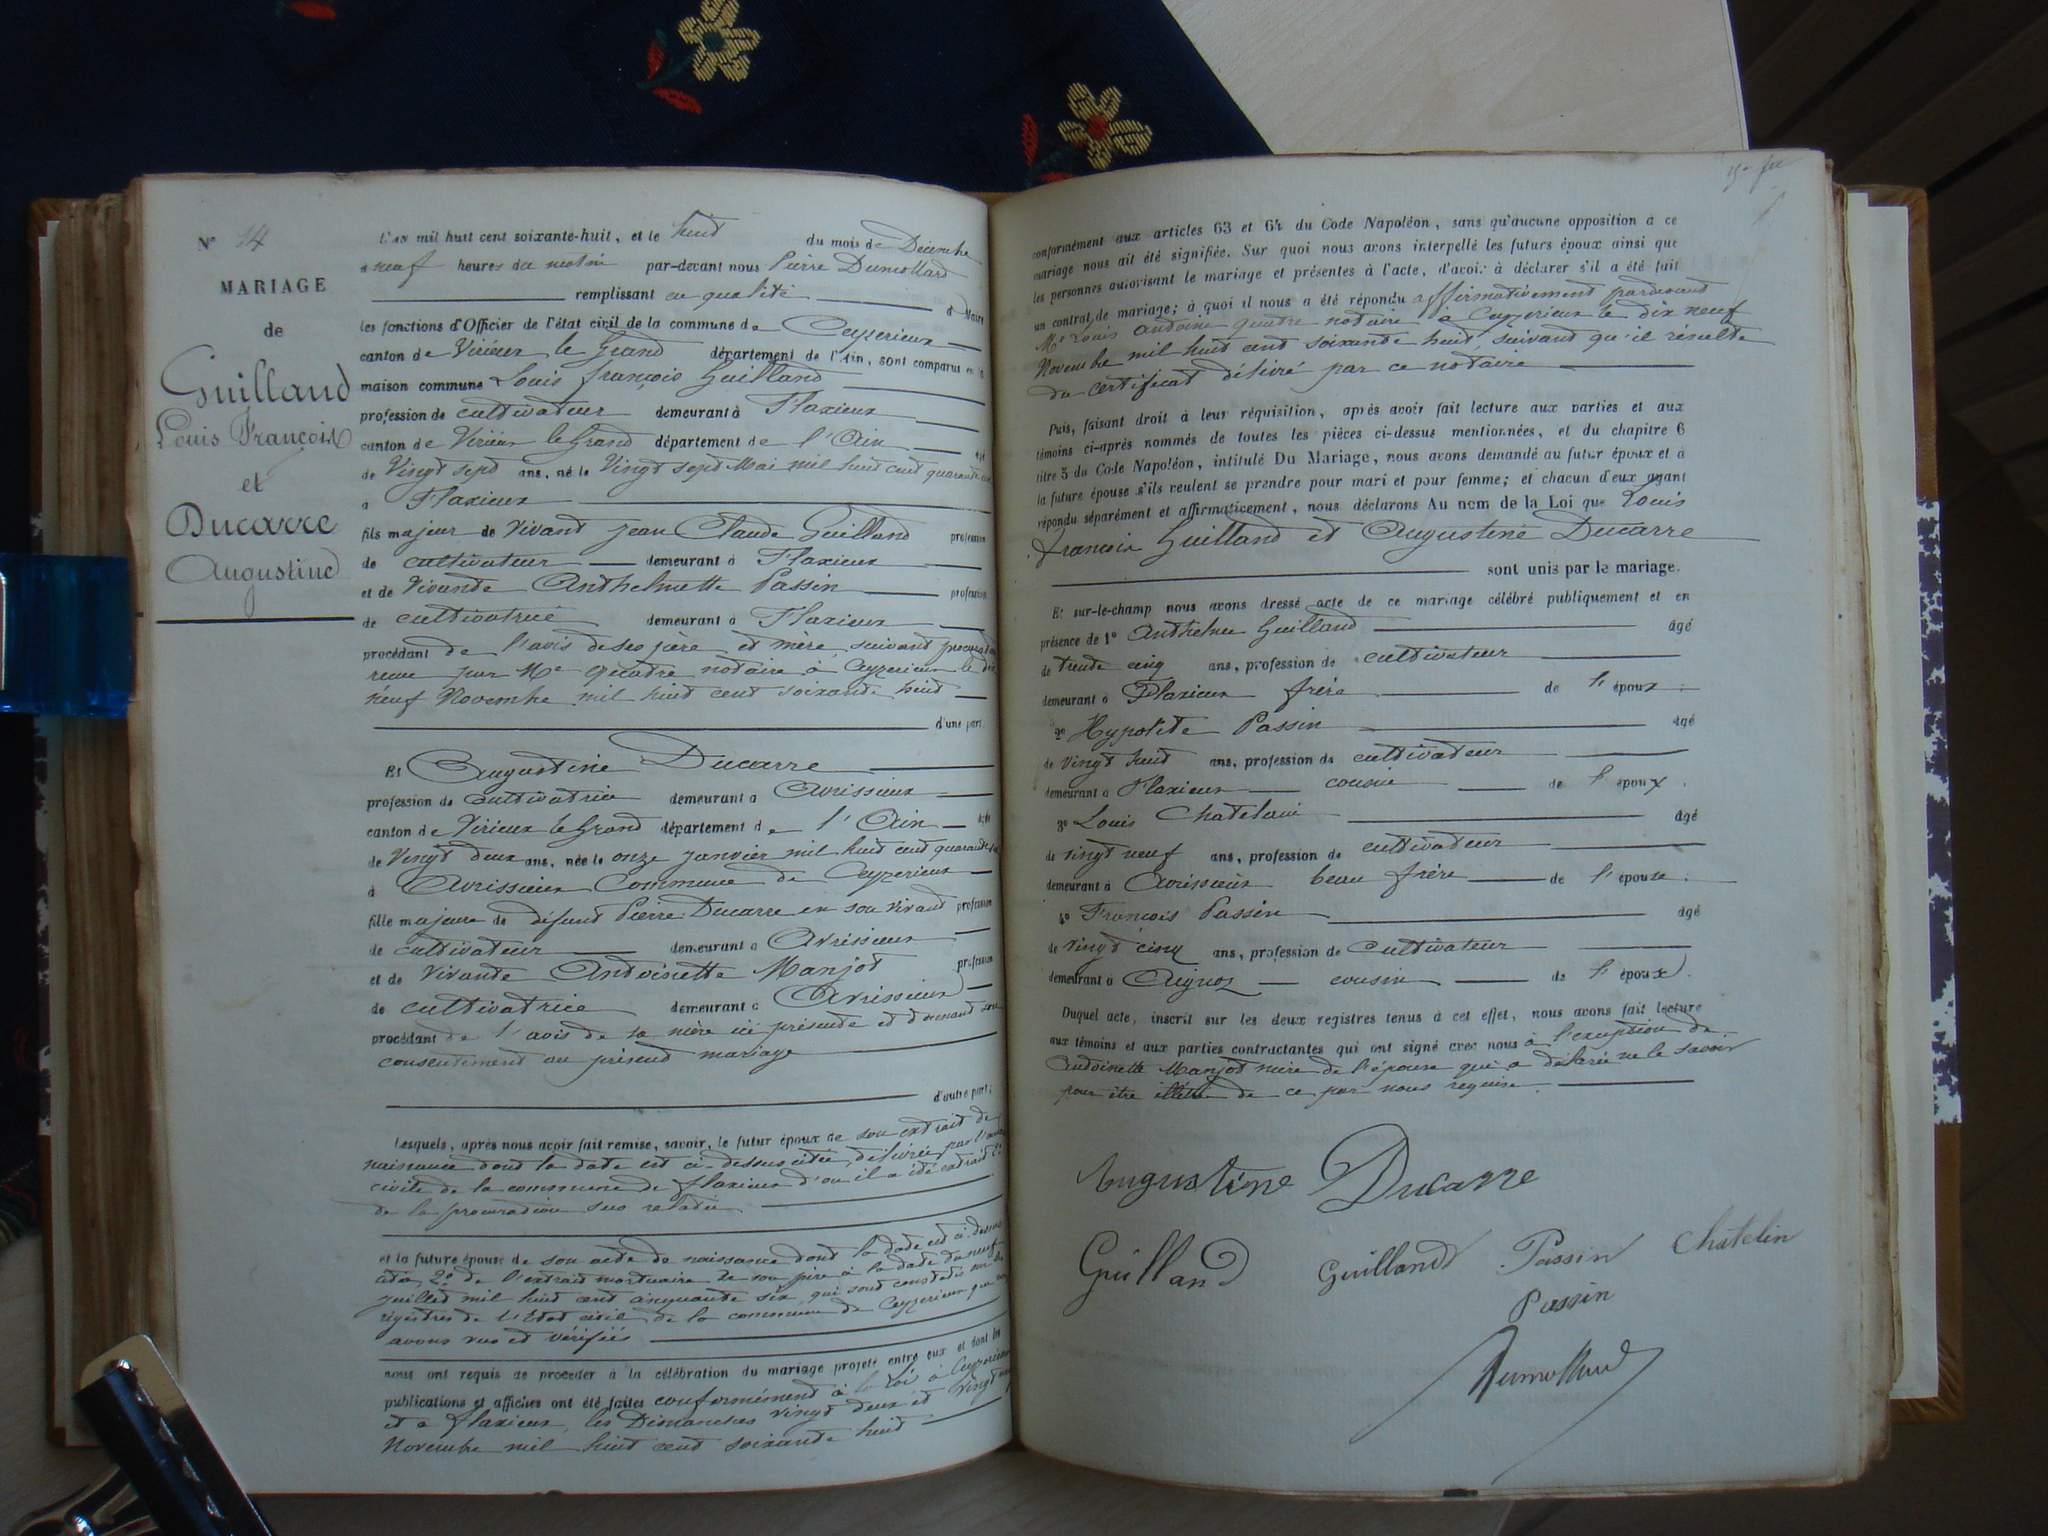 N° 14
MARIAGE
de
Guilland
Louis François
et
Ducarre
Augustine
L'an mil huit cent soixante-huit, et le huit du mois de Décembre
à neuf heures du matin par-devant nous Pierre Dumollard
remplissant en qualité de Maire
les fonctions d'Officier de l'état civil de la commune de Ceyzerieux
canton de Virieux le Grand département de l'Ain, sont comparus en la
maison commune Louis françois Guilland
profession de cultivateur demeurant à Flaxieux
canton de Virieux le Grand département de l'Ain âgé
de Vingt sept ans, né le Vingt sept Mai mil huit cent quarante
à Flaxieux
fils majeur de vivant jean Claude Guilland profession
de cultivateur demeurant à Flaxieux
et de Vivante Anthelmette Passin profession
de cultivatrice demeurant à Flaxieux
procédant de l'avis de ses père et mère, suivant procuration
reçue par Me quatre notaire à Ceyzerieux le dix
neuf Novembre mil huit cent soixante huit
d'une part.
Et Augustine Ducarre
profession de cultivatrice demeurant à Avrissieux
canton de Virieux le Grand département de l'Ain âgée
de Vingt deux ans, née le onze janvier mil huit cent quarante
à Avrissieux Commune de Ceyzerieux
fille majeure de défunt Pierre Ducarre en son vivant profession
de cultivateur demeurant à Avrissieux
et de Vivante Antoinette Manjot profession
de cultivatrice demeurant à Avrissieux
procédant de l'avis de sa mère ici présente et donnant son
consentement au présent mariage
d'autre part;
Lesquels, après nous avoir fait remise, savoir, le futur époux de son extrait de
naissance dont la date est ci-dessus citée, délivrée par l'
civile de la commune de flaxieux d'où il a été extrait 2°
de la procuration sus relatée
et la future épouse de son acte de naissance dont la date est ci-dessus
citée, 2° de l'extrait mortuaire de son père à la date du neuf
juillet mil huit cent cinquante six, qui sont constatés sur les
régistres de l'Etat civil de la commune de Ceyzerieux que nous
avons vus et vérifiés
nous ont requis de procéder à la célébration du mariage projeté entre eux et dont les
publications et affiches ont été faites conformément à la loi à Ceyzerieux
et à flaxieux, les Dimanches vingt deux et vingt neuf
Novembre mil huit cent soixante huit
conformément aux articles 63 et 64 du Code Napoléon, sans qu'aucune opposition à ce
mariage nous ait été signifiée. Sur quoi nous avons interpellé les futurs époux ainsi que
les personnes autorisant le mariage et présentes à l'acte, d'avoir à déclarer s'il a été fait
un contrat de mariage; à quoi il nous a été répondu affirmativement pardevant
Me Louis Antoine quatre notaire à Ceyzerieux le dix neuf
Novembre mil huit cent soixante huit, suivant qu'il résulte
du certificat délivré par ce notaire
Puis, faisant droit à leur réquisition, après avoir fait lecture aux parties et aux
témoins ci-après nommés de toutes les pièces ci-dessus mentionnées, et du chapitre 6
titre 5 du Code Napoléon, intitulé Du Mariage, nous avons demandé au futur époux et à
la future épouse s'ils veulent se prendre pour mari et pour femme; et chacun d'eux ayant
répondu séparément et affirmativement, nous déclarons Au nom de la Loi que Louis
françois Guilland et Augustine Ducarre
sont unis par le mariage.
Et sur-le-champ nous avons dressé acte de ce mariage célébré publiquement et en
présence de 1° Anthelme Guilland âgé
de trente cinq ans, profession de cultivateur
demeurant à Flaxieux frère de l'époux;
2° Hypolite Passin âgé
de vingt huit ans, profession de cultivateur
demeurant à Flaxieux cousin de l'époux.
3° Louis Chatelain âgé
de vingt neuf ans, profession de cultivateur
demeurant à Avrissieux beau frère de l'épouse;
4° François Passin âgé
de vingt cinq ans, profession de cultivateur
demeurant à Aignoz cousin de l'époux.
Duquel acte, inscrit sur les deux registres tenus à cet effet, nous avons fait lecture
aux témoins et aux parties contractantes qui ont signé avec nous à l'exception de
Antoinette Manjot mère de l'épouse qui a déclaré ne le savoir
pour être de ce par nous requise.
Augustine Ducarre
Guilland Guilland Passin Chatelin
Passin
Dumollard